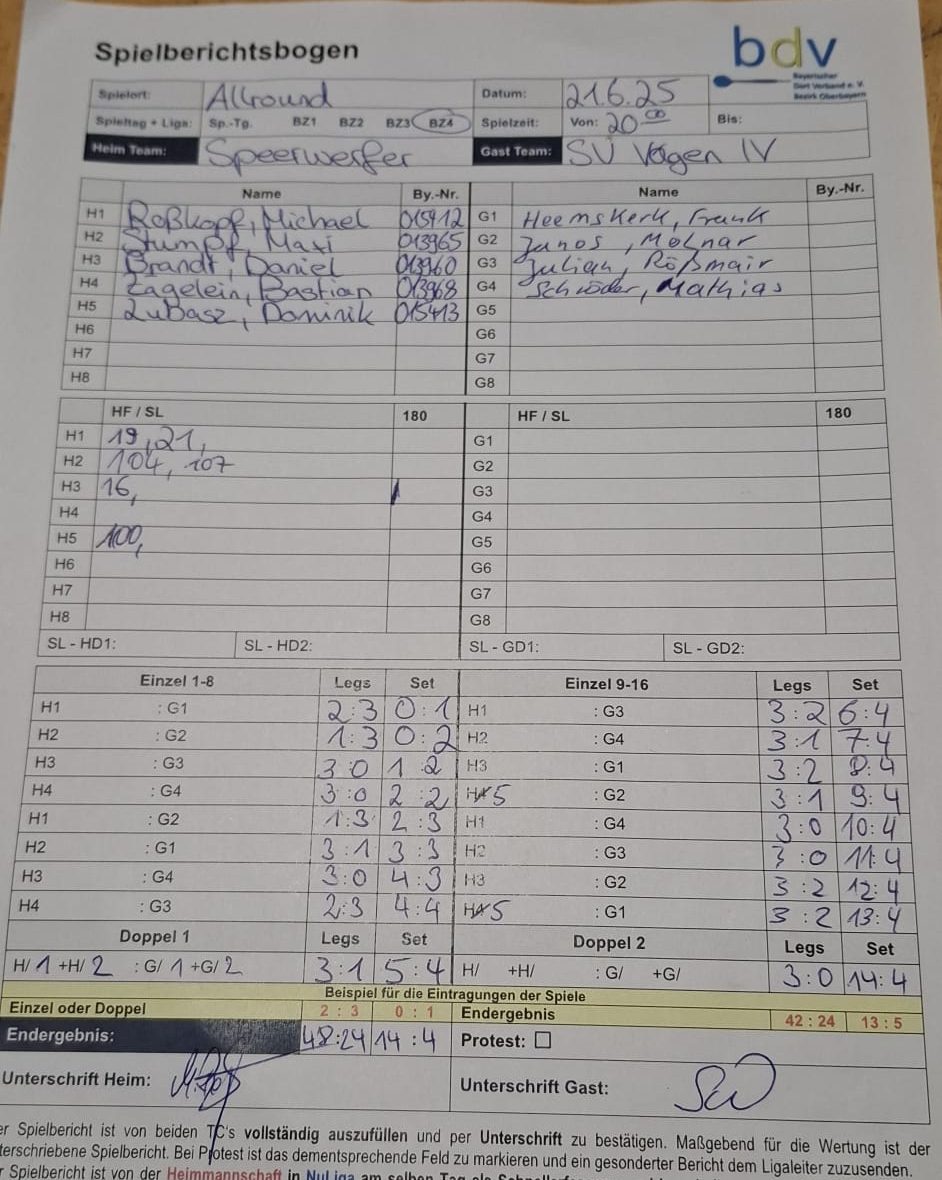 Spielberichtsbogen
bdv
Bayerischer
Dart Verband e. V.
Bezirk Oberbayern
Spielort: Allround Datum: 21.6.25
Spieltag + Liga: Sp.-Tg. BZ1 BZ2 BZ3 BZ4 Spielzeit: Von: 20 00 Bis:
Heim Team: Speerwerfer Gast Team: SV Vagen IV
Name By.-Nr. Name By.-Nr.
H1 Roßkopf, Michael 015412 G1 Heemskerk, Frank
H2 Stumpf, Maxi 013965 G2 Janos, Molnar
H3 Brandt, Daniel 013960 G3 Julian, Rößmair
H4 Zagelein, Bastian 013968 G4 Schröder, Mathias
H5 Lubasz, Dominik 015413 G5
H6 G6
H7 G7
H8 G8
HF / SL 180 HF / SL 180
H1 19, 21, G1
H2 104, 107 G2
H3 16, I G3
H4 G4
H5 100, G5
H6 G6
H7 G7
H8 G8
SL - HD1: SL - HD2: SL - GD1: SL - GD2:
Einzel 1-8 Legs Set Einzel 9-16 Legs Set
H1 : G1 2:3 0:1 H1 : G3 3:2 6:4
H2 : G2 1:3 0:2 H2 : G4 3:1 7:4
H3 : G3 3 0 1 2 H3 : G1 3:2 8:4
H4 : G4 3:0 2:2 H5 : G2 3:1 9:4
H1 : G2 1:3 2:3 H1 : G4 3:0 10:4
H2 : G1 3:1 3:3 H2 : G3 3:0 11:4
H3 : G4 3:0 4:3 H3 : G2 3:2 12:4
H4 : G3 2:3 4:4 H5 : G1 3:2 13:4
Doppel 1 Legs Set Doppel 2 Legs Set
H/ 1 +H/ 2 : G/ 1 +G/ 2 3:1 5:4 H/ +H/ : G/ +G/ 3:0 14:4
Beispiel für die Eintragungen der Spiele
Einzel oder Doppel 2 : 3 0 : 1 Endergebnis 42 : 24 13 : 5
Endergebnis: 48:24 14:4 Protest:
Unterschrift Heim: Unterschrift Gast:
er Spielbericht ist von beiden TC's vollständig auszufüllen und per Unterschrift zu bestätigen. Maßgebend für die Wertung ist der
terschriebene Spielbericht. Bei Protest ist das dementsprechende Feld zu markieren und ein gesonderter Bericht dem Ligaleiter zuzusenden.
r Spielbericht ist von der Heimmannschaft in NuLiga am selben Tag als